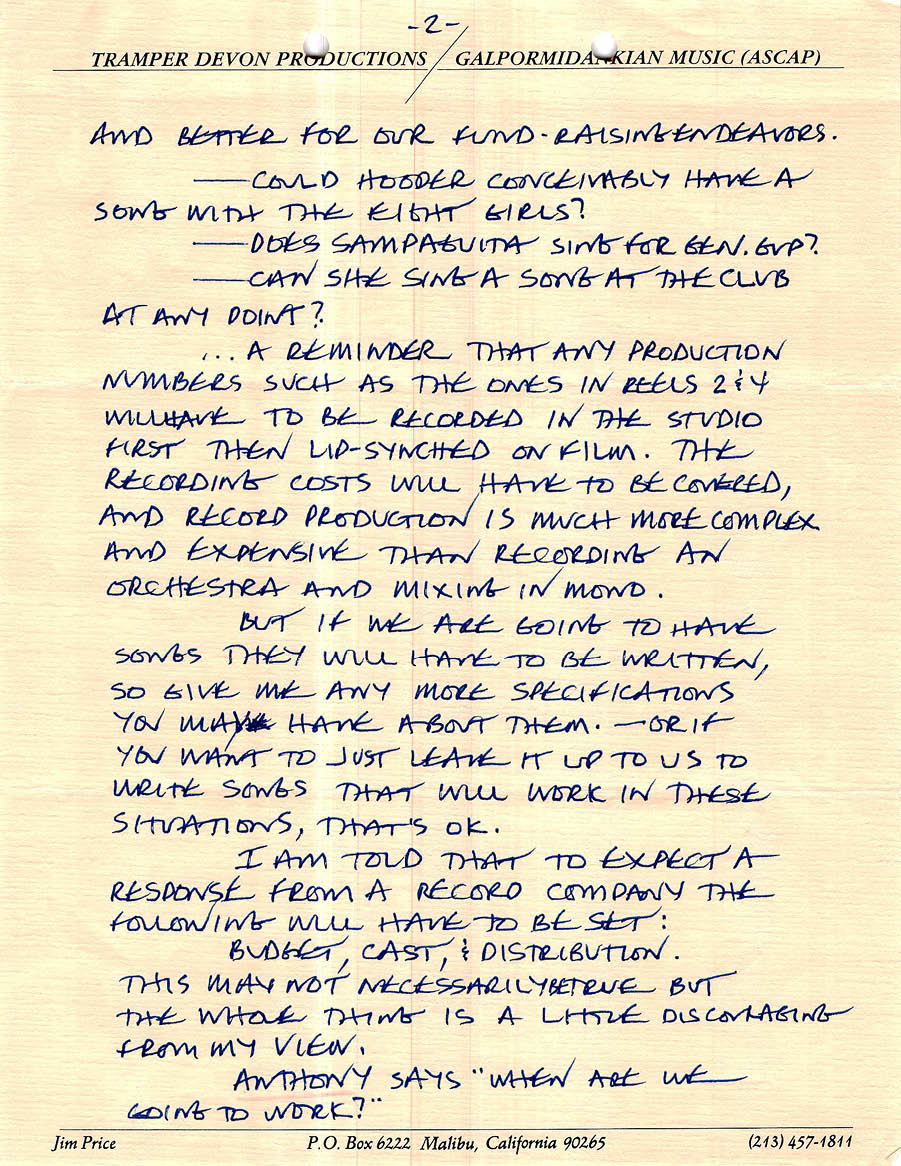 -2-
TRAMPER DEVON PRODUCTIONS / GALPORMIDANKIAN MUSIC (ASCAP)
AND BETTER FOR OUR FUND-RAISING ENDEAVORS.
—COULD HOODER CONCEIVABLY HAVE A
SONG WITH THE EIGHT GIRLS?
—DOES SAMPAGUITA SING FOR GEN. GUP?
—CAN SHE SING A SONG AT THE CLUB
AT ANY POINT?
... A REMINDER THAT ANY PRODUCTION
NUMBERS SUCH AS THE ONES IN REELS 2 & 4
WILL HAVE TO BE RECORDED IN THE STUDIO
FIRST THEN LIP-SYNCHED ON FILM. THE
RECORDING COSTS WILL HAVE TO BE COVERED,
AND RECORD PRODUCTION IS MUCH MORE COMPLEX
AND EXPENSIVE THAN RECORDING AN
ORCHESTRA AND MIXING IN MONO.
BUT IF WE ARE GOING TO HAVE
SONGS THEY WILL HAVE TO BE WRITTEN,
SO GIVE ME ANY MORE SPECIFICATIONS
YOU MAY HAVE ABOUT THEM. —OR IF
YOU WANT TO JUST LEAVE IT UP TO US TO
WRITE SONGS THAT WILL WORK IN THESE
SITUATIONS, THAT'S OK.
I AM TOLD THAT TO EXPECT A
RESPONSE FROM A RECORD COMPANY THE
FOLLOWING WILL HAVE TO BE SET:
BUDGET, CAST, & DISTRIBUTION.
THIS MAY NOT NECESSARILY BE TRUE BUT
THE WHOLE THING IS A LITTLE DISCOURAGING
FROM MY VIEW.
ANTHONY SAYS "WHEN ARE WE
GOING TO WORK?"
Jim Price P.O. Box 6222 Malibu, California 90265 (213) 457-1811